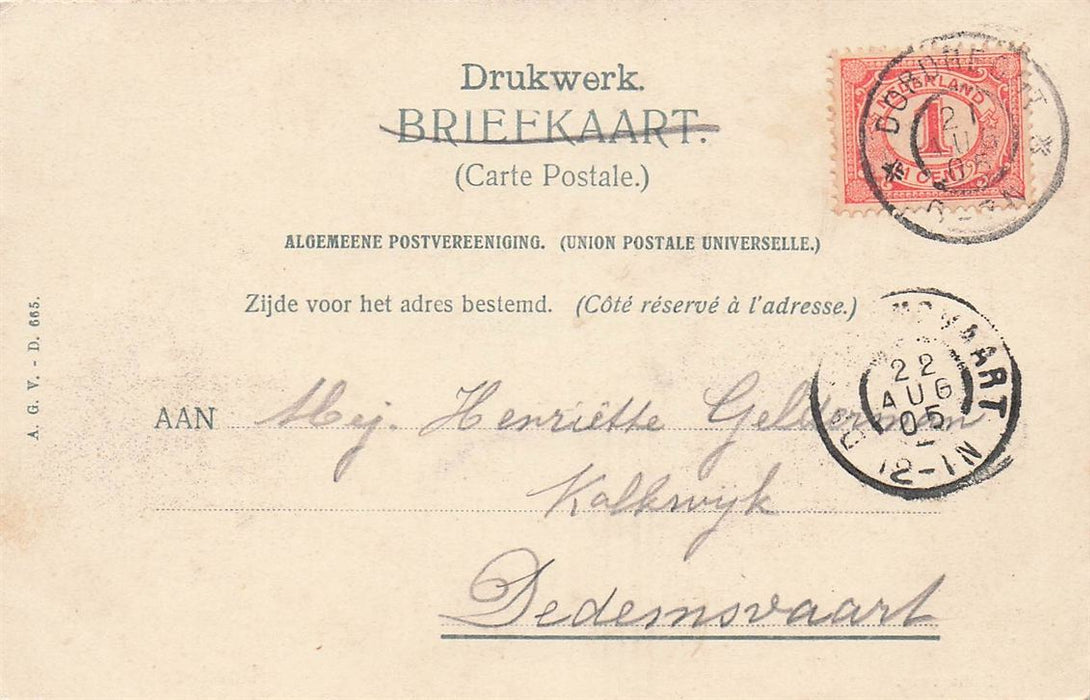 Drukwerk.
BRIEFKAART.
(Carte Postale.)
ALGEMEENE POSTVEREENIGING. (UNION POSTALE UNIVERSELLE.)
Zijde voor het adres bestemd. (Côté réservé à l'adresse.)
AAN Mej. Henriëtte Gelderman
Kalkwijk
Dedemsvaart
A. G. V. - D. 665.
NEDERLAND
1
DORDRECHT
21
22
AUG
05
12-1N